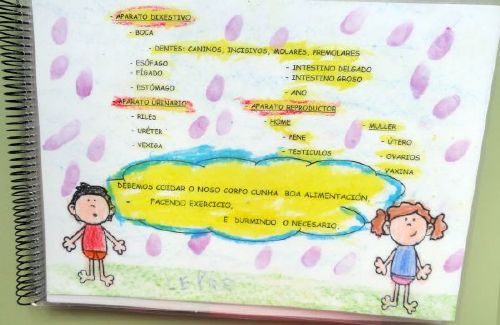 - APARATO DIXESTIVO
- BOCA
- DENTES: CANINOS, INCISIVOS, MOLARES, PREMOLARES
- ESÓFAGO
- FÍGADO
- ESTÓMAGO
- INTESTINO DELGADO
- INTESTINO GROSO
- ANO
APARATO URINARIO
- RILES
- URÉTER
- VEXIGA
APARATO REPRODUCTOR
- HOME
- PENE
- TESTICULOS
- MULLER
- ÚTERO
- OVARIOS
- VAXINA
DEBEMOS COIDAR O NOSO CORPO CUNHA BOA ALIMENTACIÓN,
- FACENDO EXERCICIO,
E DURMINDO O NECESARIO.